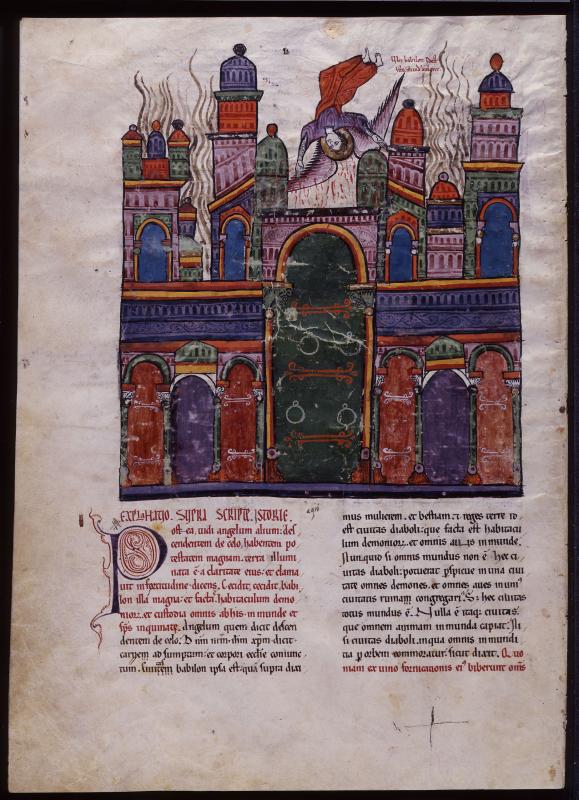 EXPLANATIO. SUPRA SCRIPTE. ISTORIE.
Post ea. uidi angelum alium: des
cendentem de celo. habentem po
testatem magnam. terra illumi
nata ē a claritate eius: et clama
uit in fortitudine dicens. Cecidit. cecidit. babi
lon illa magna. et facta. habitaculum demo
niorū. et custodia omnis
inquinate. Angelum quem dicit descen
dentem de celo.
carnem adsumptum: et corpori ecclie coniunc
tum. babilon ipsa est: quā supra dixi
mus mulierem. et bestiam. et reges terre. ro
est ciuitas diaboli: que facta est habitacu
lum demoniorū. et omnis in munde.
Nunquid si omnis mundus non ē hec ci
uitas diaboli. potuerat pspicue in una ciui
tate omnes demones. et omnes aues in
ciuitatis ruinam congregari. Si hec ciuitas
totus mundus ē. Nulla ē itaq; ciuitas.
que omnem animam in munda capiat. Ni
si ciuitas diaboli. in qua omnis in mundi
tia p orbem commoratur. sicut dixit. Quo
niam ex uino fornicationis ei' biberunt oms